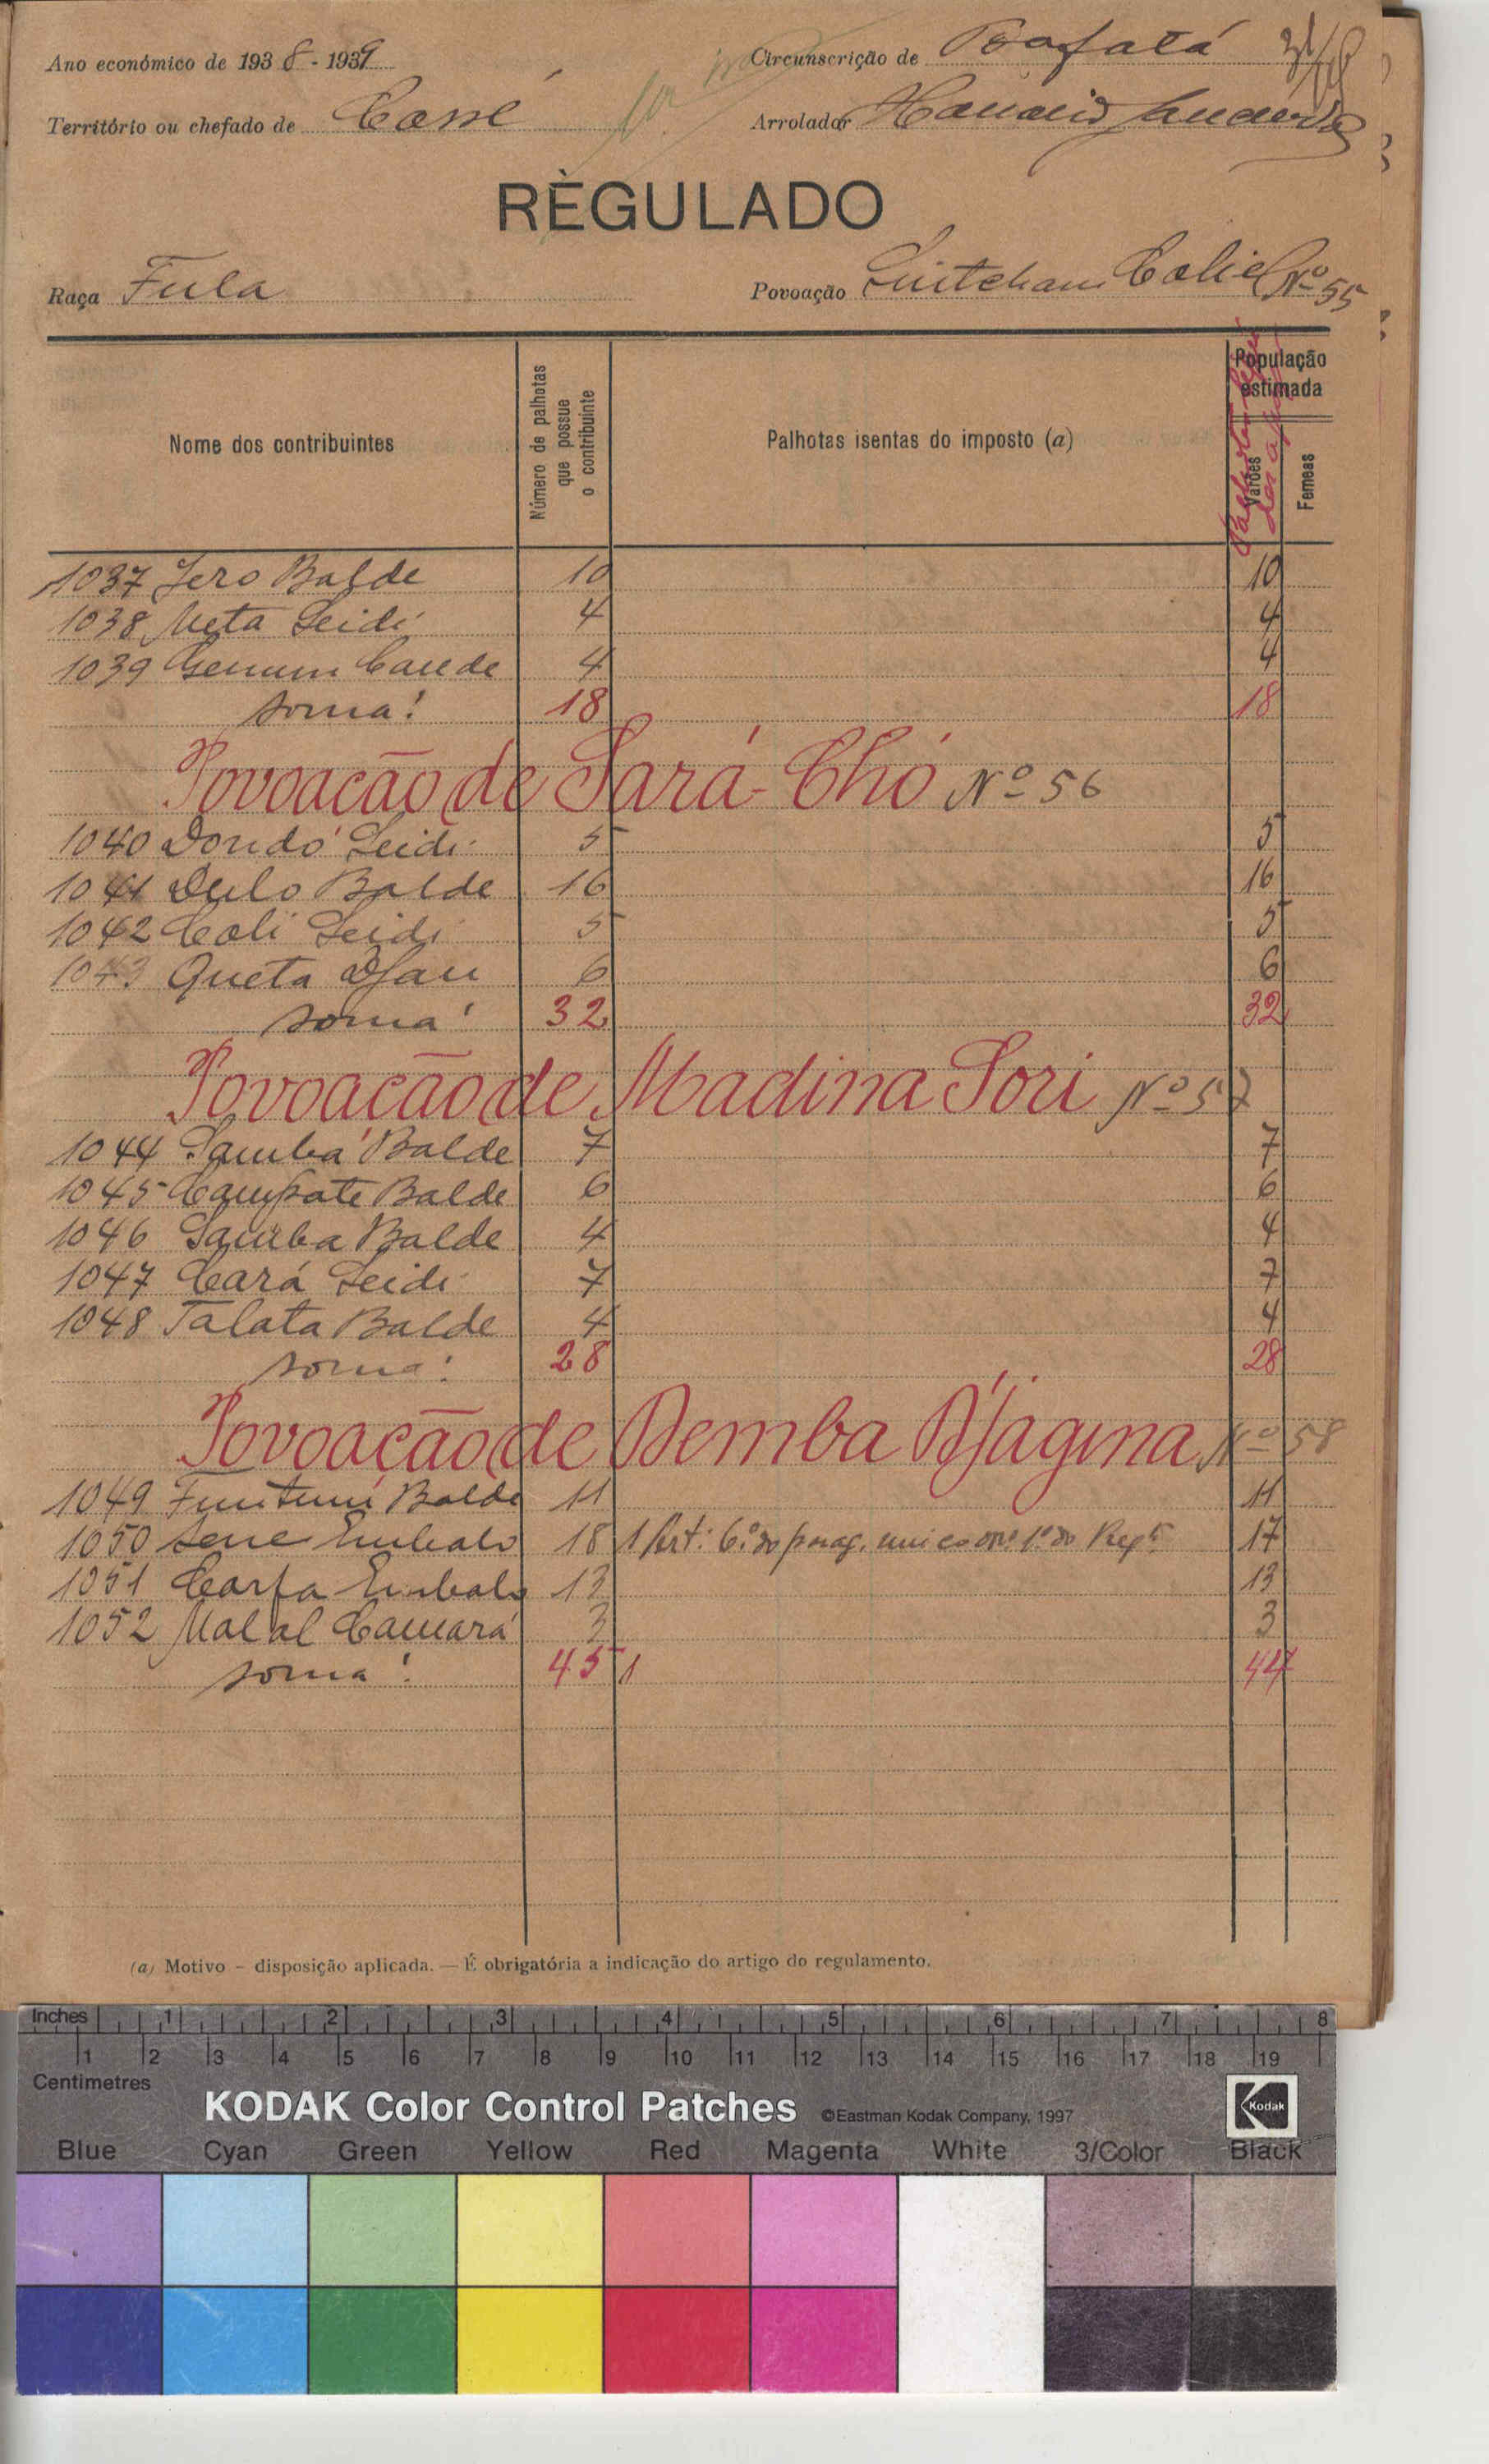 Ano económico de 1938-1939
Circunscrição de Bafatá
Território ou chefado de Cossé
Arrolador
RÈGULADO
Raça Fula
Povoação Coliel Nº 55
Nome dos contribuintes
Número de palhotas que possue o contribuinte
Palhotas isentas do imposto (a)
População estimada
Varões
Femeas
1037 Jero Balde 10 10
1038 Meta Seidi 4 4
1039 4 4
soma: 18 18
Povoação de Sará-Chó Nº 56
1040 Dondó Seidi 5 5
1041 Dulo Balde 16 16
1042 Coli Seidi 5 5
1043 Queta Djau 6 6
soma: 32 32
Povoação de Madina Sori Nº 57
1044 Samba Balde 7 7
1045 Campate Balde 6 6
1046 Samba Balde 4 4
1047 Cará Seidi 7 7
1048 Talata Balde 4 4
soma: 28 28
Povoação de Demba D'jagina Nº 58
1049 Balde 11 11
1050 Embalo 18 1 Art: 6º do parag. unico nº 1º do Regto 17
1051 Embalo 13 13
1052 Malal Camará 3 3
soma: 45 1 44
(a) Motivo - disposição aplicada. — É obrigatória a indicação do artigo do regulamento.
Inches 1 2 3 4 5 6 7 8
1 2 3 4 5 6 7 8 9 10 11 12 13 14 15 16 17 18 19
Centimetres
KODAK Color Control Patches ©Eastman Kodak Company, 1997 Kodak
Blue Cyan Green Yellow Red Magenta White 3/Color Black